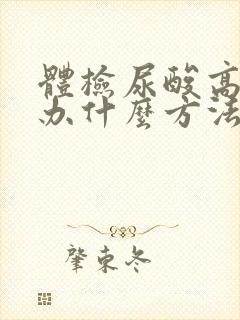 體檢尿酸高
办什麼方法
肇東冬